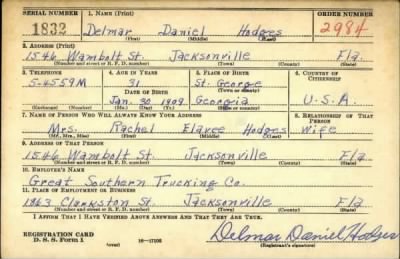 SERIAL NUMBER 1. NAME (Print) ORDER NUMBER
1832 Delmar Daniel Hodges 2984
(First) (Middle) (Last)
2. ADDRESS (Print)
1546 Wambolt St. Jacksonville Fla.
(Number and street or R. F. D. number) (Town) (County) (State)
3. TELEPHONE 4. AGE IN YEARS 5. PLACE OF BIRTH 6. COUNTRY OF CITIZENSHIP
5-4559M 31 St. George
DATE OF BIRTH (Town or county)
Jan. 30 1909 Georgia U.S.A.
(Exchange) (Number) (Mo.) (Day) (Yr.) (State or country)
7. NAME OF PERSON WHO WILL ALWAYS KNOW YOUR ADDRESS 8. RELATIONSHIP OF THAT PERSON
Mrs. Rachel Hodges Wife
(Mr., Mrs., Miss) (First) (Middle) (Last)
9. ADDRESS OF THAT PERSON
1546 Wambolt St. Jacksonville Fla
(Number and street or R. F. D. number) (Town) (County) (State)
10. EMPLOYER'S NAME
Great Southern Trucking Co.
11. PLACE OF EMPLOYMENT OR BUSINESS
1863 Clarkston St. Jacksonville Fla
(Number and street or R. F. D. number) (Town) (County) (State)
I AFFIRM THAT I HAVE VERIFIED ABOVE ANSWERS AND THAT THEY ARE TRUE.
REGISTRATION CARD
D. S. S. Form 1 16-17105 Delmar Daniel Hodges
(Registrant's signature)